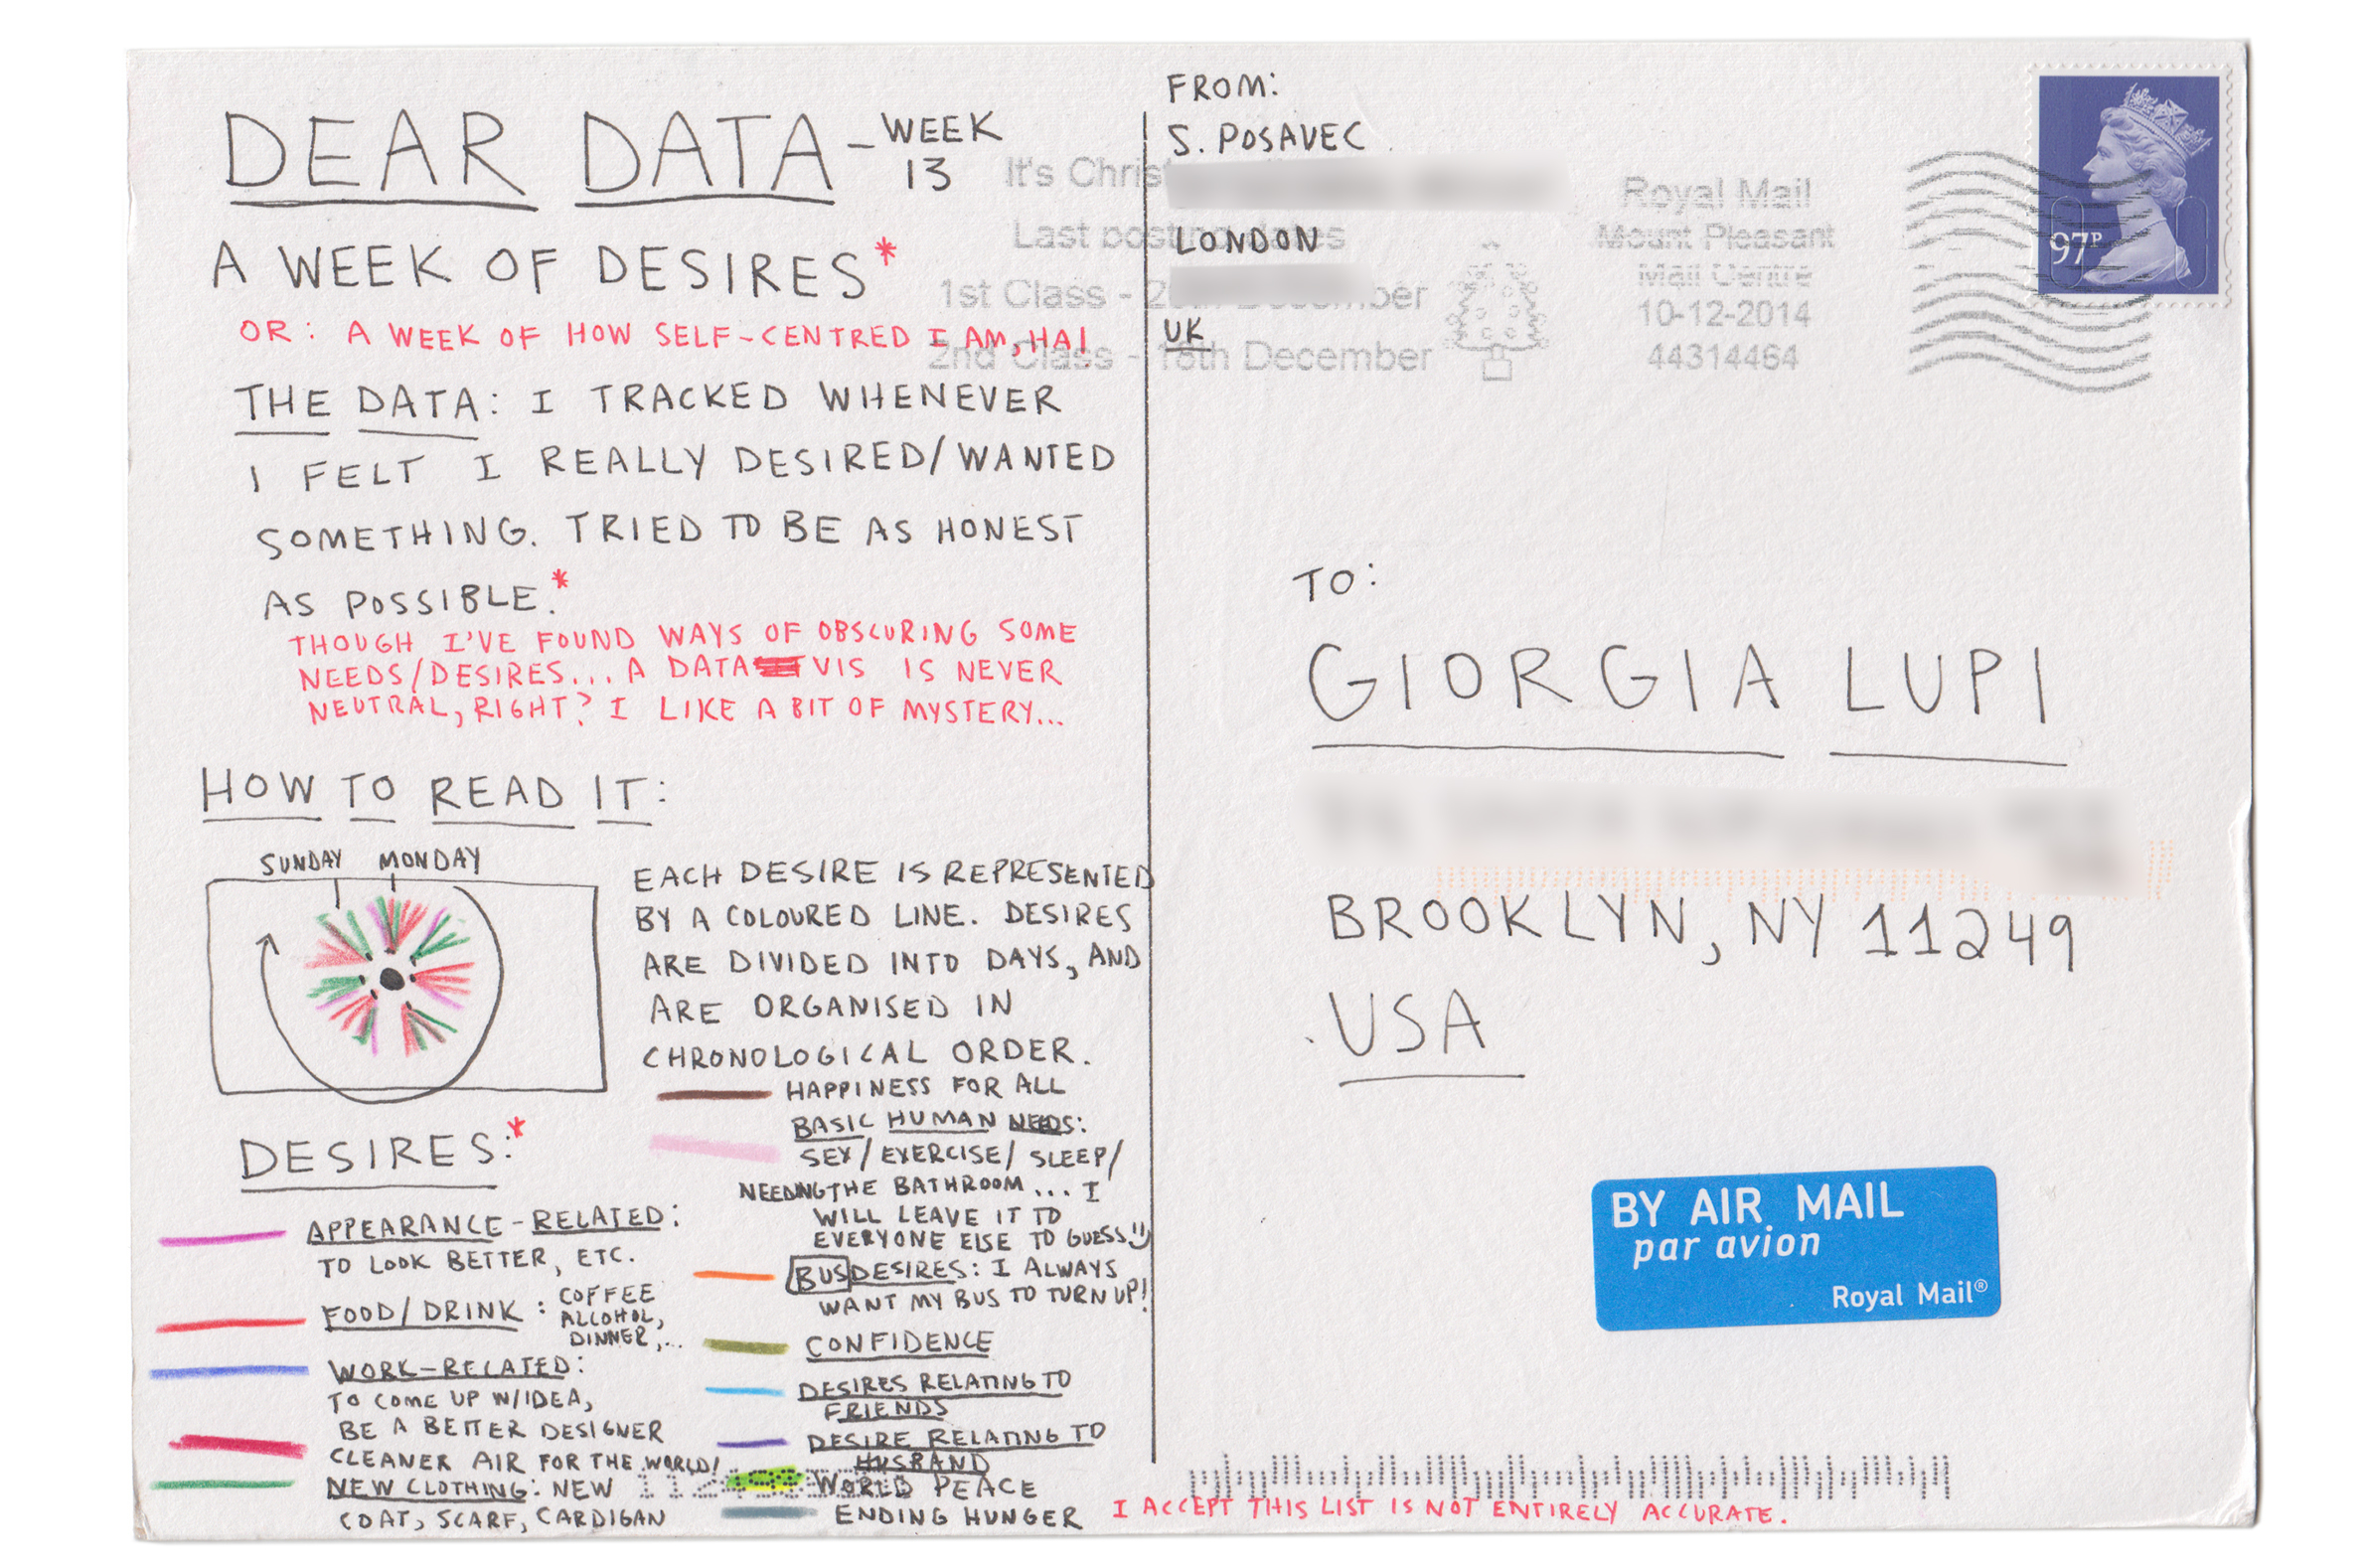 DEAR DATA - WEEK 13
A WEEK OF DESIRES*
OR: A WEEK OF HOW SELF-CENTRED I AM, HA!
THE DATA: I TRACKED WHENEVER
I FELT I REALLY DESIRED/WANTED
SOMETHING. TRIED TO BE AS HONEST
AS POSSIBLE.*
THOUGH I'VE FOUND WAYS OF OBSCURING SOME
NEEDS/DESIRES... A DATA VIS IS NEVER
NEUTRAL, RIGHT? I LIKE A BIT OF MYSTERY...
HOW TO READ IT:
SUNDAY MONDAY
EACH DESIRE IS REPRESENTED
BY A COLOURED LINE. DESIRES
ARE DIVIDED INTO DAYS, AND
ARE ORGANISED IN
CHRONOLOGICAL ORDER.
DESIRES:*
APPEARANCE-RELATED:
TO LOOK BETTER, ETC.
FOOD/DRINK: COFFEE
ALCOHOL,
DINNER,...
WORK-RELATED:
TO COME UP W/IDEA,
BE A BETTER DESIGNER
CLEANER AIR FOR THE WORLD!
NEW CLOTHING: NEW
COAT, SCARF, CARDIGAN
HAPPINESS FOR ALL
BASIC HUMAN NEEDS:
SEX/EXERCISE/SLEEP/
NEEDING THE BATHROOM... I
WILL LEAVE IT TO
EVERYONE ELSE TO GUESS :)
BUS DESIRES: I ALWAYS
WANT MY BUS TO TURN UP!
CONFIDENCE
DESIRES RELATING TO
FRIENDS
DESIRE RELATING TO
HUSBAND
WORLD PEACE
ENDING HUNGER
I ACCEPT THIS LIST IS NOT ENTIRELY ACCURATE.
FROM:
S. POSAVEC
LONDON
UK
It's Christ
Last posting dates
1st Class - December
2nd Class - 18th December
Royal Mail
Mount Pleasant
Mail Centre
10-12-2014
44314464
97P
TO:
GIORGIA LUPI
BROOKLYN, NY 11249
USA
BY AIR MAIL
par avion
Royal Mail®